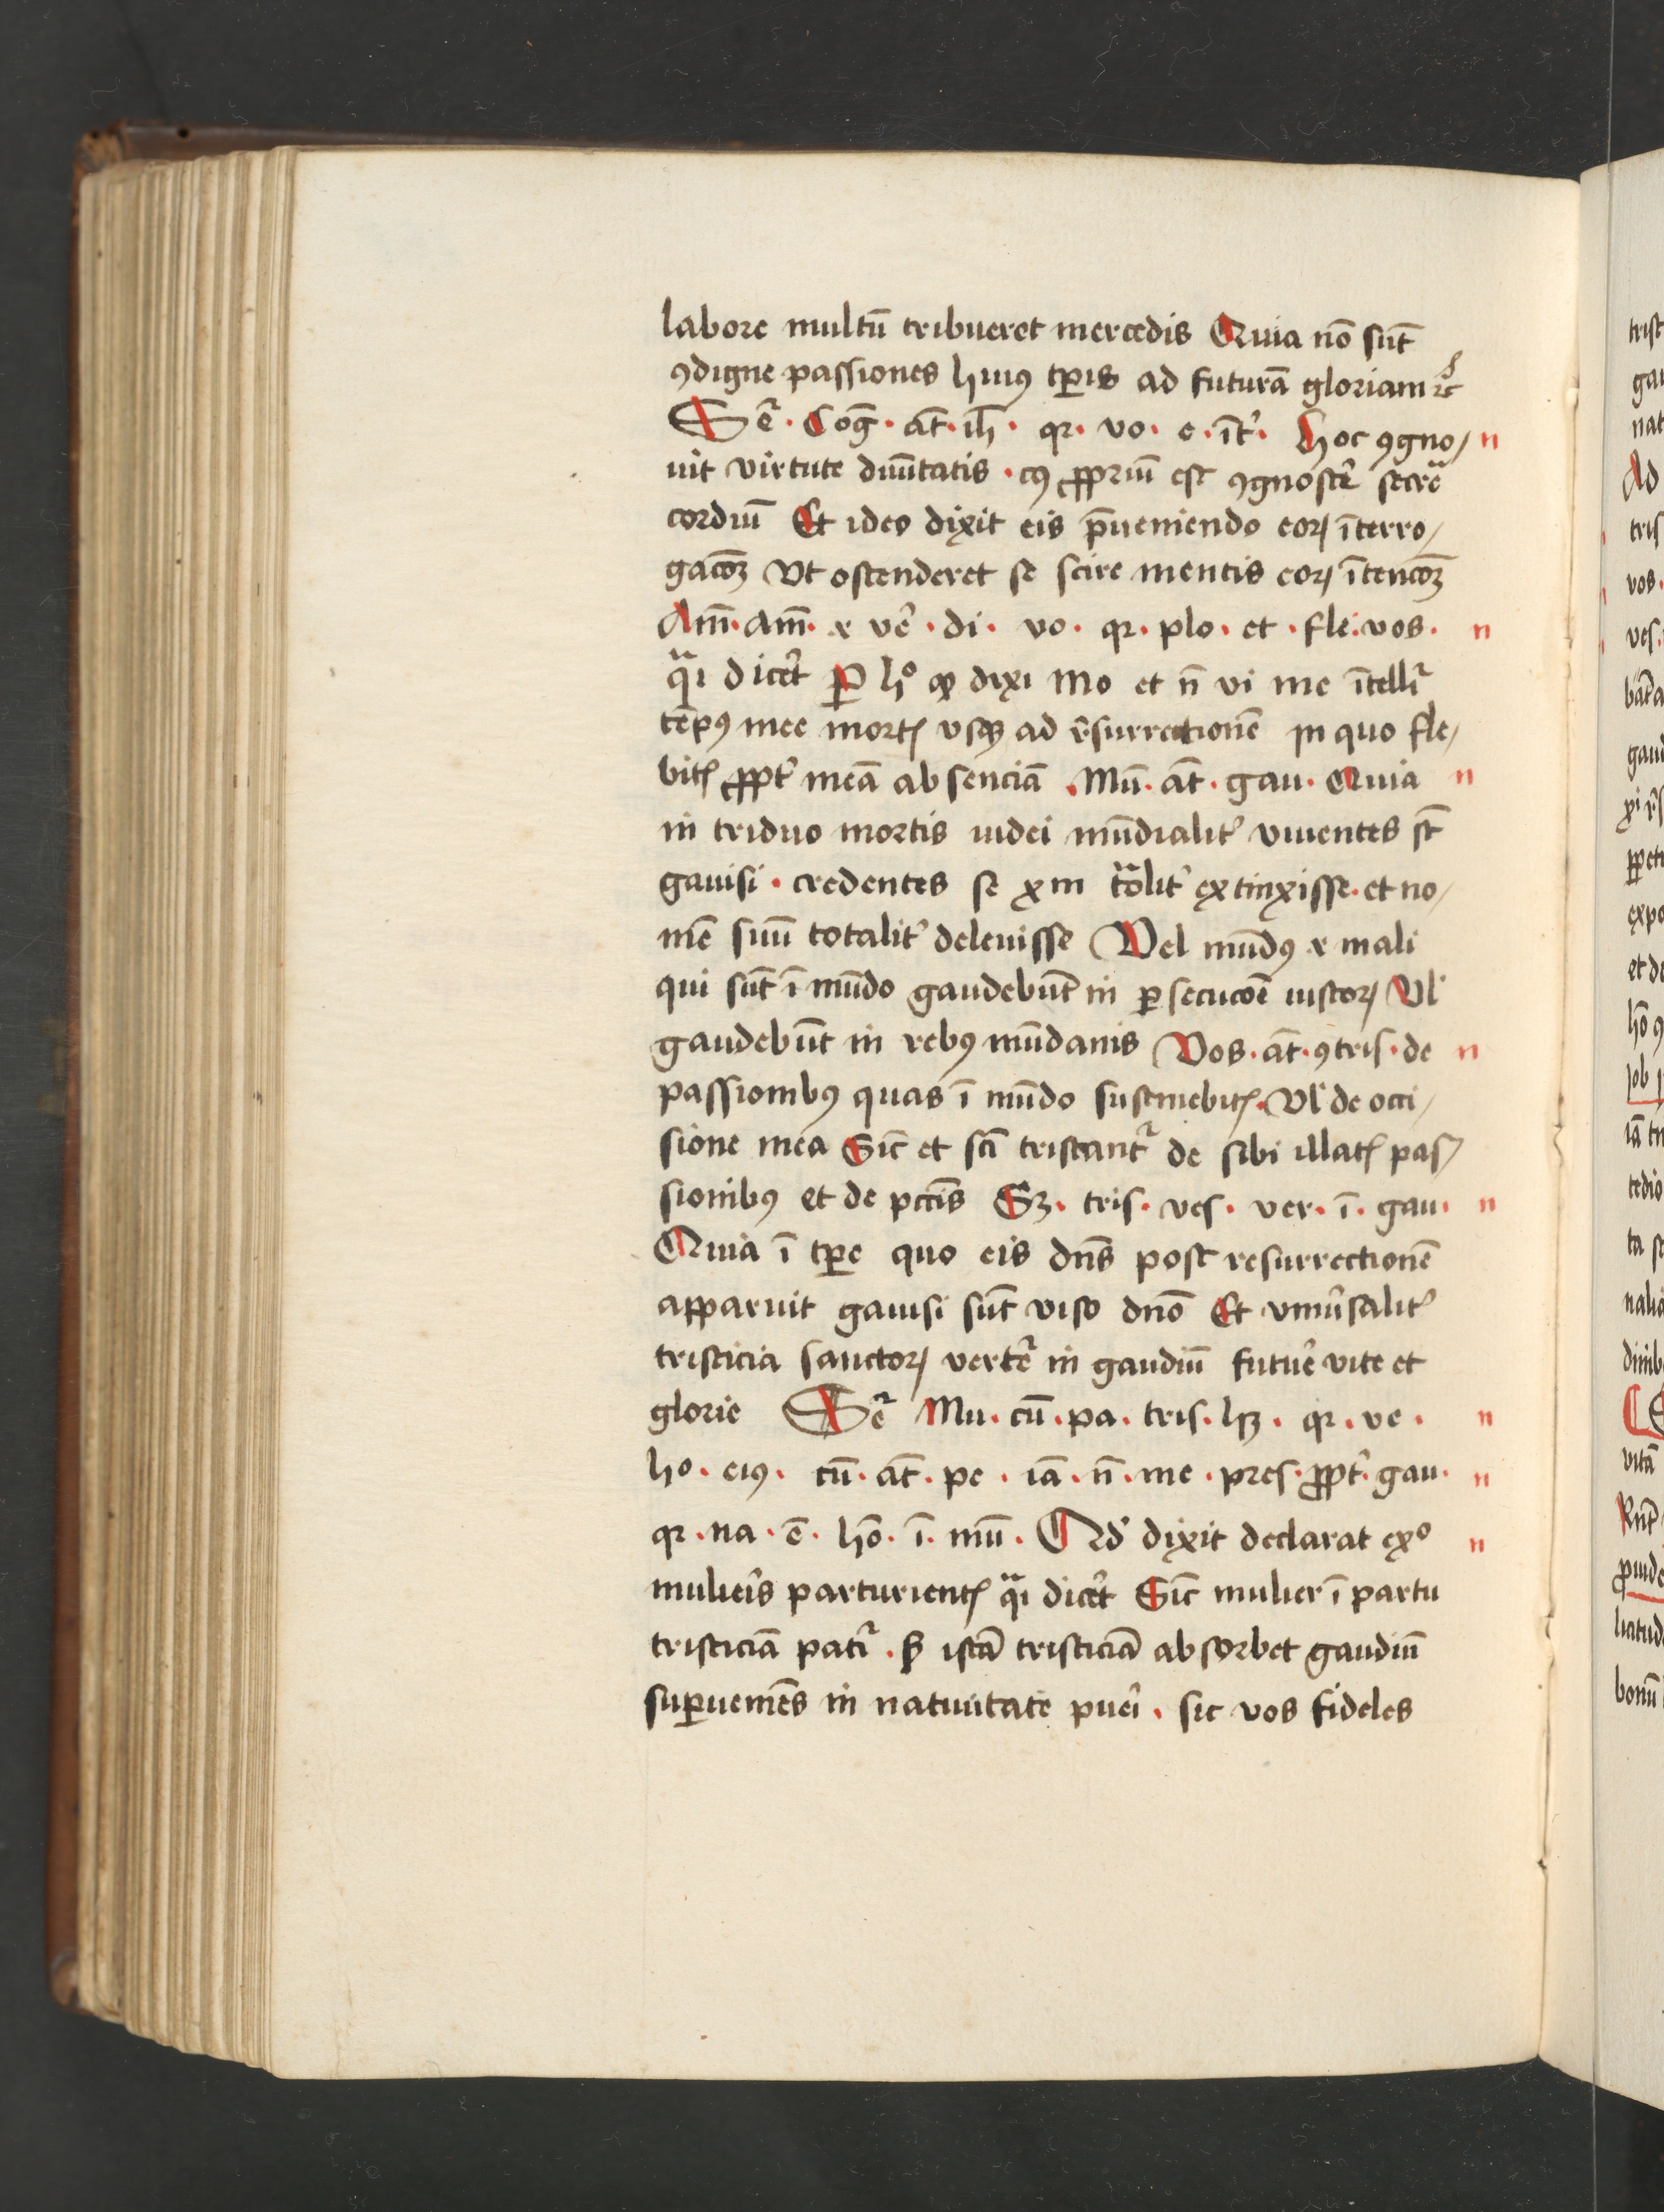 labore multū tribueret mercedis Quia nō sūt
ꝯdigne passiones huiꝰ tꝑis ad futurā gloriam ⁊c̄
Seꝛ̄ · Cog̅ · at̄ · ih̄ · qꝛ · vo · e · īt᷑ · Hoc ꝯgno/ n
uit virtute diuītatis · cꝰ ꝓpriū est ꝯgnosce᷑ secre
cordiū Et ideo dixit eis p̄ueniendo eoꝝ īterro/
gacōꝫ Vt ostenderet se scire mentis eoꝝ ītencōꝫ
Am̄ · am̄ · ⁊ ve᷑ · di · vo · qꝛ · plo · et · fle · vos · n
qᷓi dice᷑t P hº ꝙ dixi Mo et n̄ vi me ītelli᷑
tēpꝰ mee mortꝭ vsqꝫ ad r᷑surrectionē in quo fle/
bitꝭ ꝓpt᷑ meā absenciā · Mū · at̄ · gau · Quia n
in triduo mortis iudei mūdialit᷑ viuentes st̄
gauisi · credentes se xm to᷑alit᷑ extinxisse · et no/
mē suū totalit᷑ deleuisse Vel mūdꝰ ⁊ mali
qui sūt ī mūdo gaudebūt in ꝑsecucōē iustoꝝ Vl᷑
gaudebūt in rebꝰ mūdanis Vos · at̄ · ꝯtris · de n
passionibꝰ quas ī mūdo sustinebitꝭ · Vl᷑ de occi/
sione mea Sic̄ et scī tristant᷑ de sibi illatꝭ pas/
sionibꝰ et de pctīs Sꝫ · tris · ves · ver · ī · gau · n
Quia ī tꝑe quo eis dn̄s post resurrectionē
apparuit gauisi sūt viso dn̄o Et vniu᷑salit᷑
tristicia sanctoꝝ vertet᷑ in gaudiū future᷑ vite et
glorie Seꝛ̄ Mu · cū · pa · tris · hꝫ · qꝛ · ve · n
ho · eiꝰ · cū · at̄ · pe · iā · n̄ · me · pres · ꝓpt᷑ · gau · n
qꝛ · na · ē · hō · ī · mū · Qd᷑ dixit declarat exº n
mulie᷑is parturientꝭ qᷓi dice᷑t Sic̄ mulier ī partu
tristiciā pati᷑ · ꝭ istā tristiciā absorbet gaudiū
suꝑueniēs in natiuitate pue᷑i · sic vos fideles